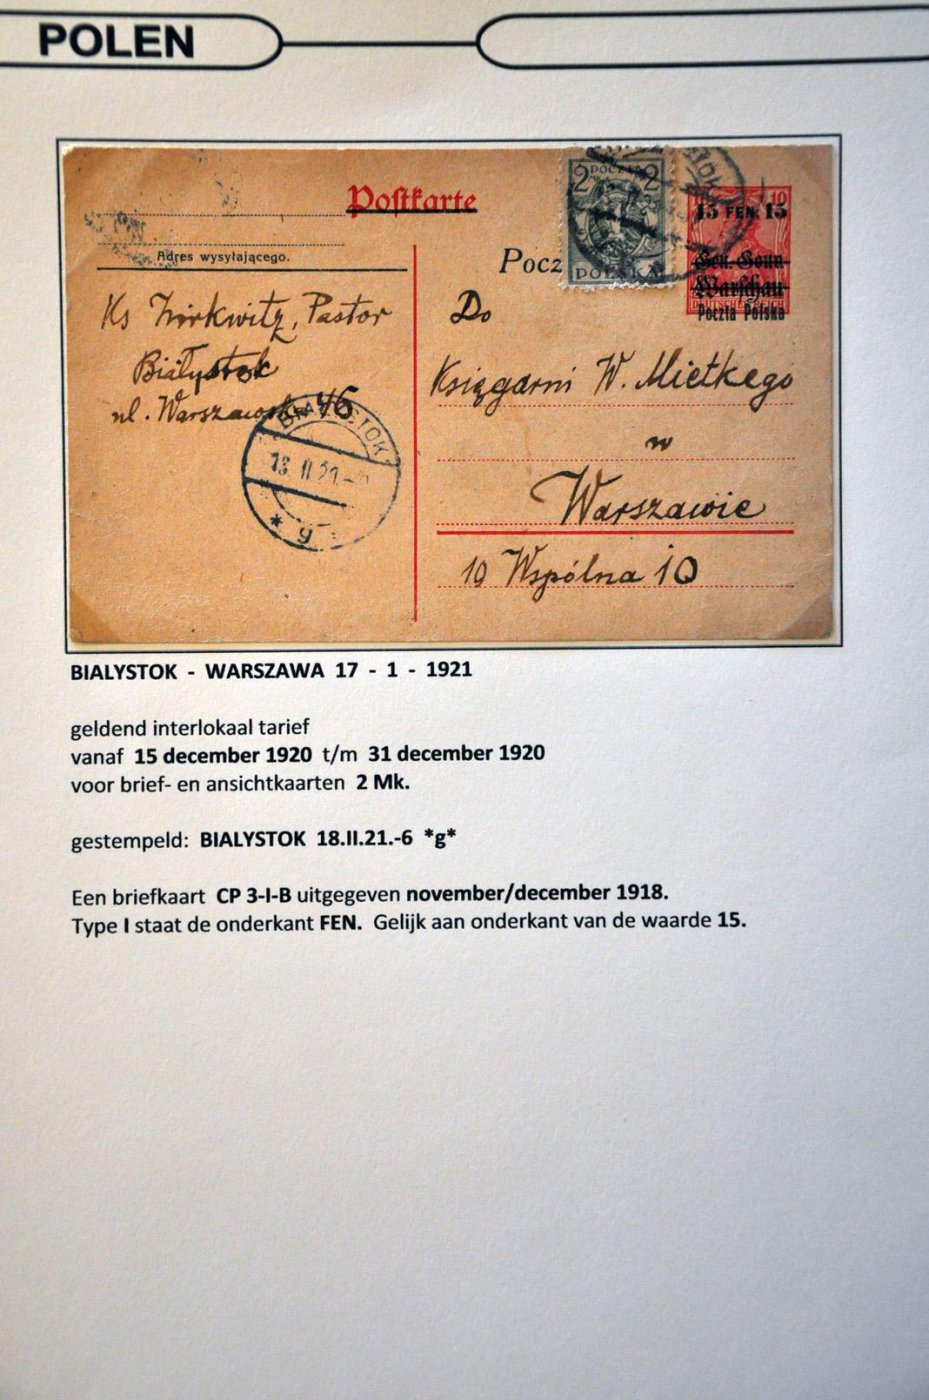 POLEN
Postkarte
2 POCZTA 2
POLSKA
10
15 FEN. 15
Gen.-Gouv.
Warschau
DEUTSCHES REICH
Poczta Polska
Adres wysyłającego.
Pocz
Ks Zirkwitz, Pastor
Białystok
ul. Warszawska 46
Do
Księgarni W. Mietkego
w
Warszawie
10 Wspólna 10
BIAŁYSTOK
18.II.21.-6
* g *
BIALYSTOK - WARSZAWA 17 - 1 - 1921
geldend interlokaal tarief
vanaf 15 december 1920 t/m 31 december 1920
voor brief- en ansichtkaarten 2 Mk.
gestempeld: BIALYSTOK 18.II.21.-6 *g*
Een briefkaart CP 3-I-B uitgegeven november/december 1918.
Type I staat de onderkant FEN. Gelijk aan onderkant van de waarde 15.